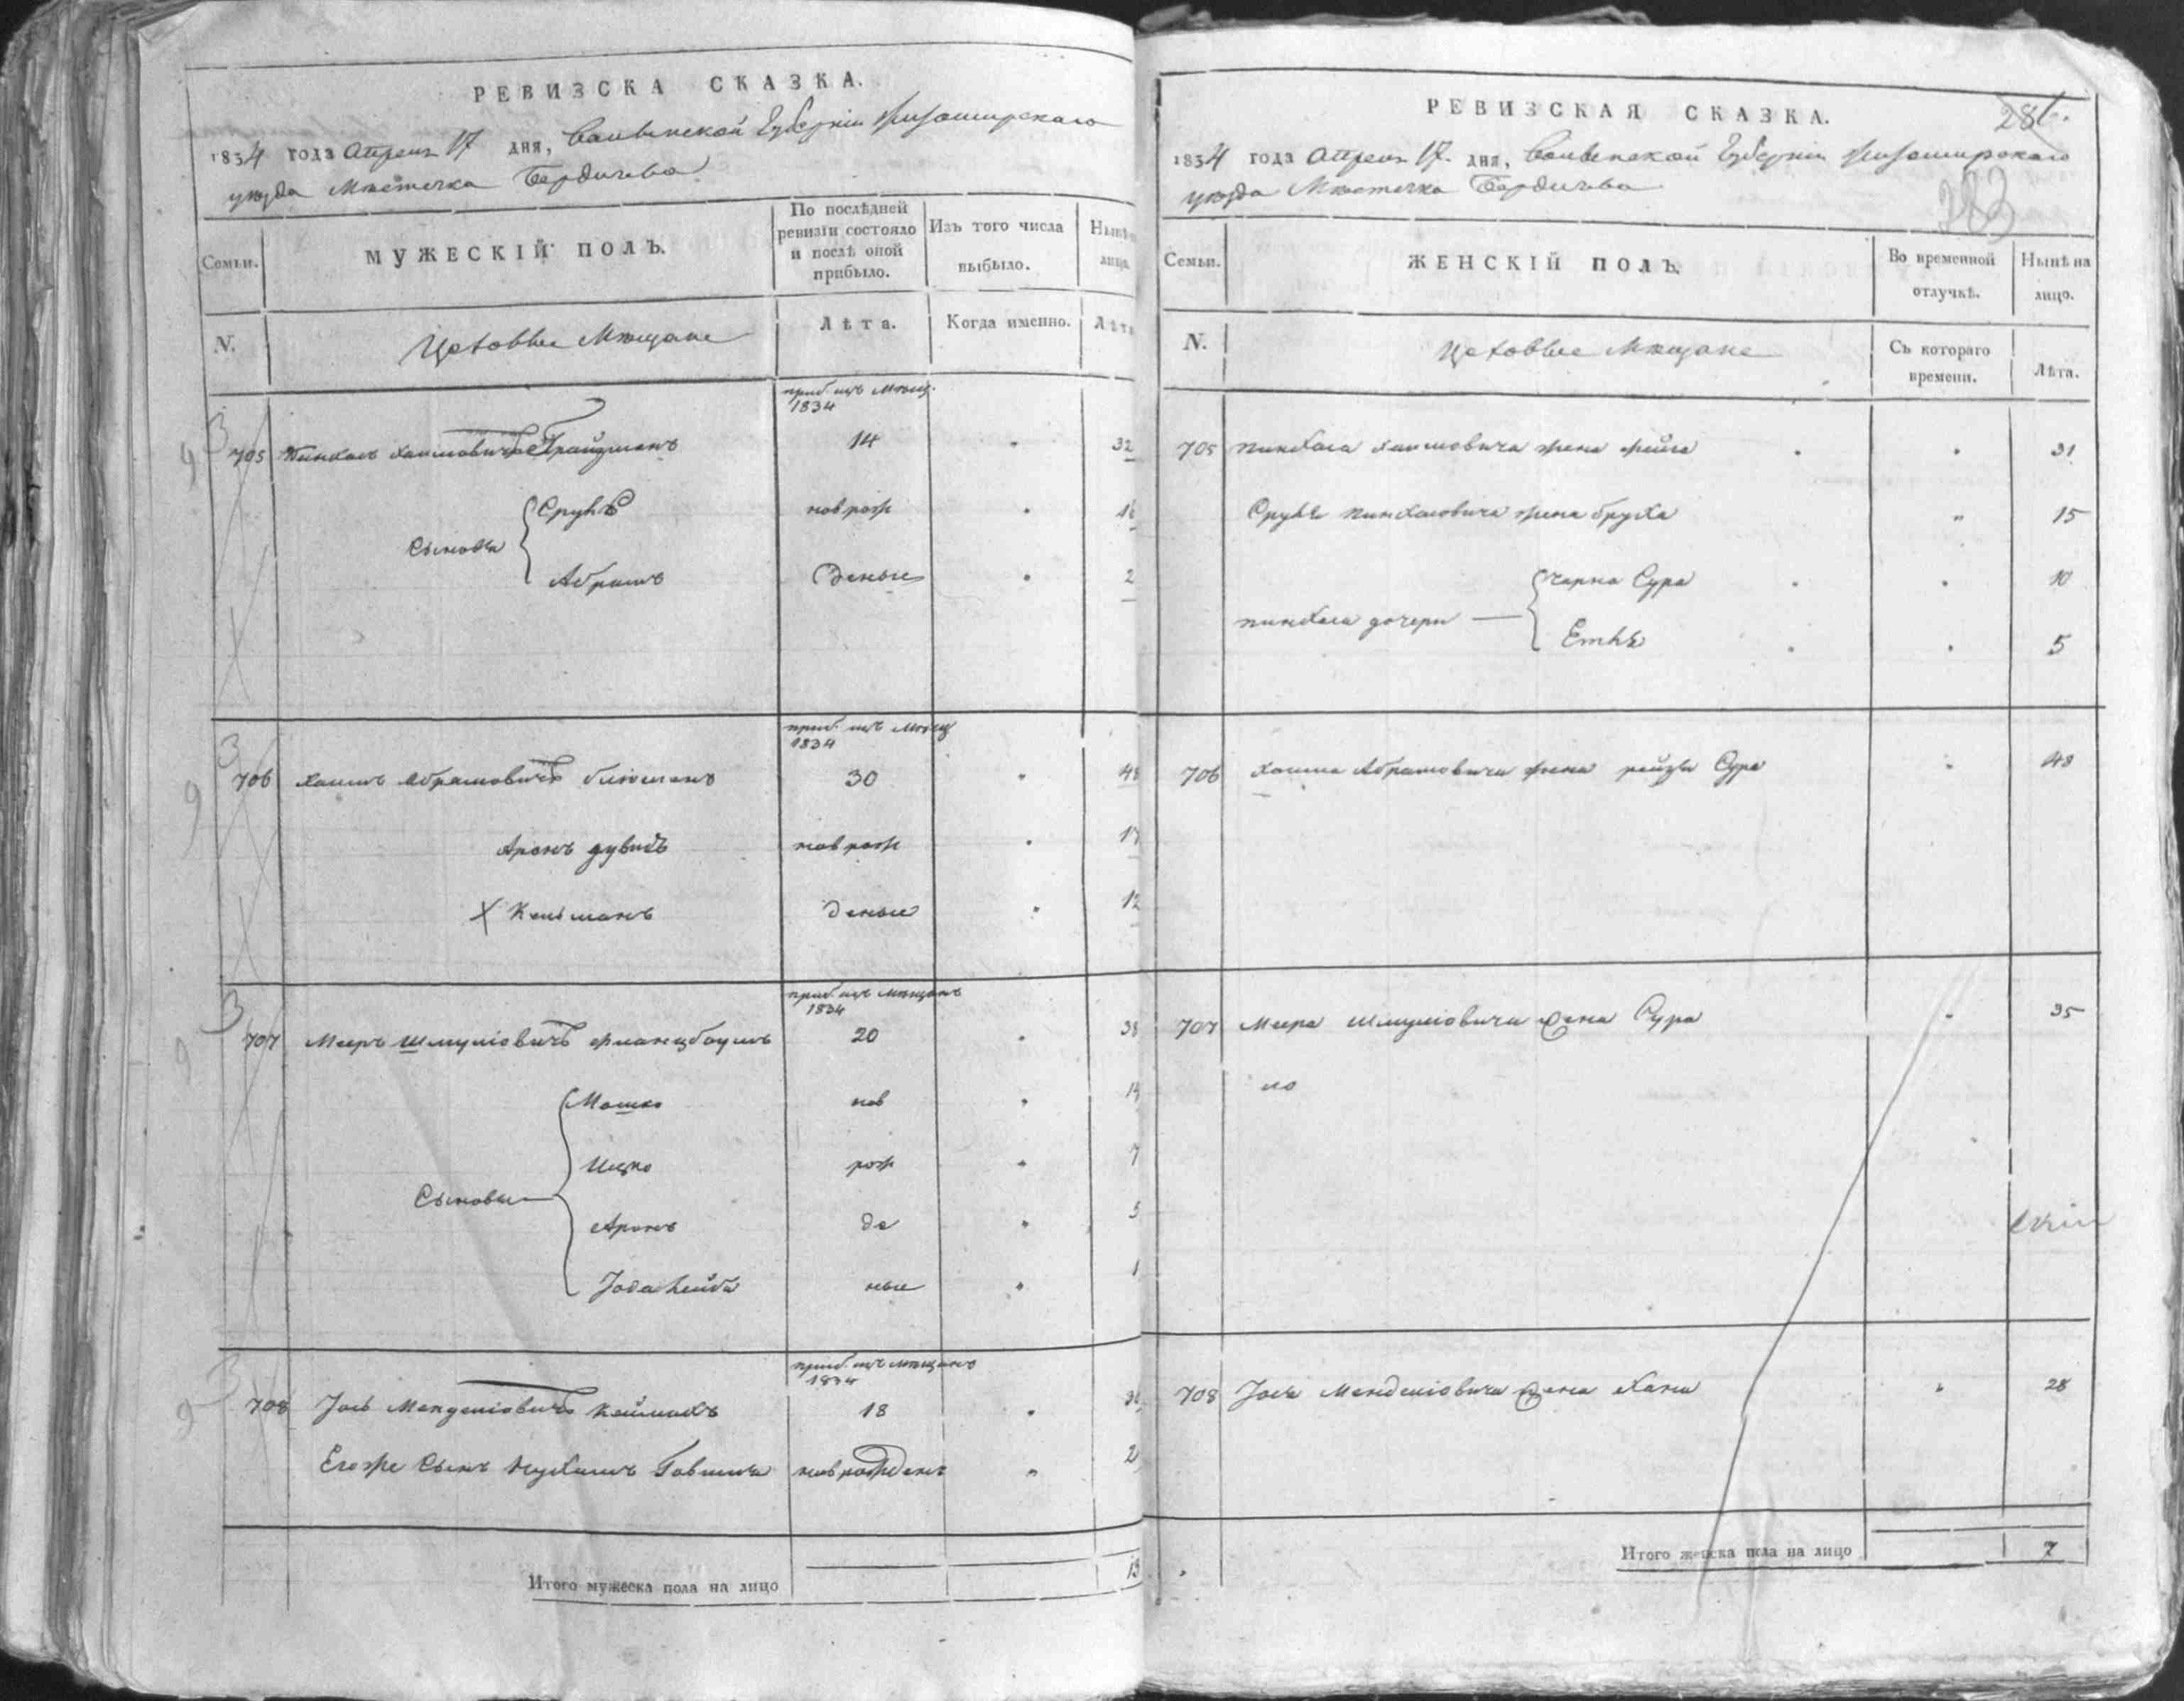 РЕВИЗСКА СКАЗКА.
1834 года Апреля 17 дня, Волынской Губернии Житомирского
уезда Местечка Бердичева
Семьи.
МУЖЕСКІЙ ПОЛЪ.
По послѣдней ревизіи состояло и послѣ оной прибыло.
Изъ того числа выбыло.
Нынѣ на лицо.
N.
Цеховые Мещане
Лѣта.
Когда именно.
Лѣта
приб. изъ Мещ.
1834
705 Пинхасъ Хаимовичъ 14 32
Сыновья
Сруль новрож 16
Абрамъ деные 2
приб. изъ Мещ
1834
706 Хаимъ Абрамовичъ 30 48
Аронъ Дувидъ новрож 17
X Кельманъ деные 12
приб. изъ мещанъ
1834
707 Мееръ Шмуліовичъ Фланцбаумъ 20 38
Сыновья
Мошко нов 14
Ицко рож 7
Аронъ де 5
Іода Лейба ные 1
приб. изъ мещанъ
1834
708 Іось Менделіовичъ 18
Егоже Сынъ Нухимъ новрожден 2
Итого мужеска пола на лицо 13
РЕВИЗСКАЯ СКАЗКА.
281.
1834 года Апреля 17. дня, Волынской Губернии Житомирского
уезда Местечка Бердичева
283
Семьи.
ЖЕНСКІЙ ПОЛЪ.
Во временной отлучкѣ.
Нынѣ на лицо.
N.
Цеховые Мещане
Съ котораго времени.
Лѣта.
705 Пинхаса Хаимовича жена Фейга 31
Сруля Пинхасовича жена Бруха 15
Пинхаса дочери
Чарна Сура 10
Етля 5
706 Хаима Абрамовича жена Рейзя Сура 48
707 Меера Шмуліовича жена Сура 35
708 Іося Менделіовича жена Хана 28
Итого женска пола на лицо 7